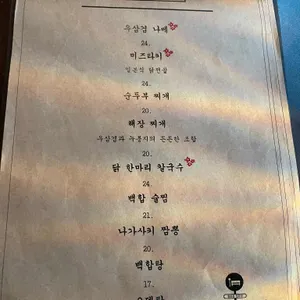 우삼겹 나베
24.
미즈타키
일본식 닭전골
24.
순두부 찌개
20.
해장 찌개
우삼겹과 누룽지의 든든한 조합
20.
닭 한마리 칼국수
24.
백합 술찜
21.
나가사키 짬뽕
20.
백합탕
17.
오뎅탕